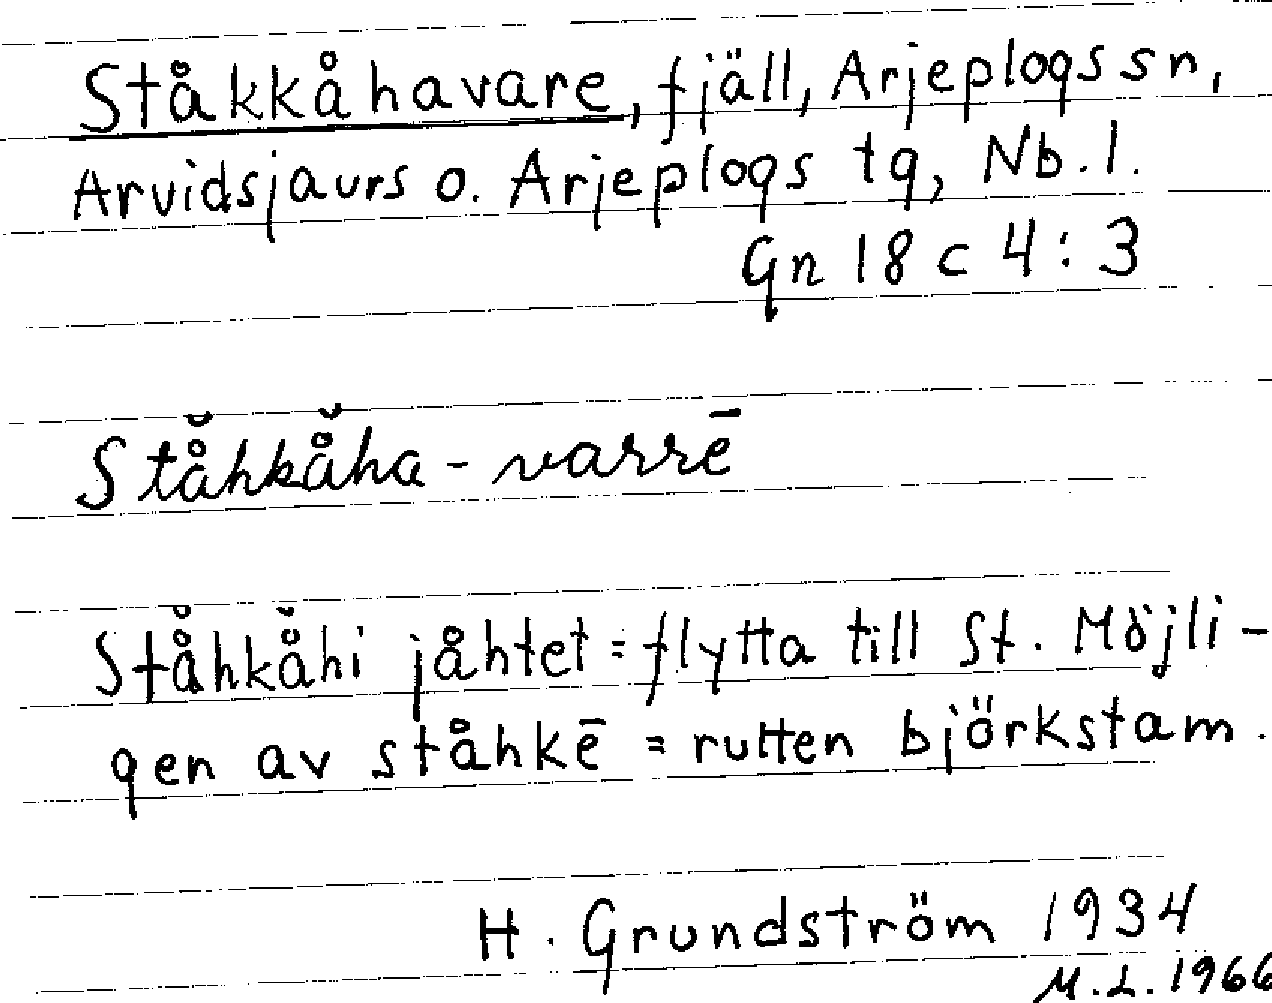 Ståkkåhavare, fjäll, Arjeplogs sn,
Arvidsjaurs o. Arjeplogs tg, Nb. l.
Gn 18 c 4 : 3
Stå̆hkå̆ha - varrē
Stå̆hkå̆hi jåhtet = flytta till St. Möjli-
gen av ståhkē = rutten björkstam.
H. Grundström 1934
M. L. 1966